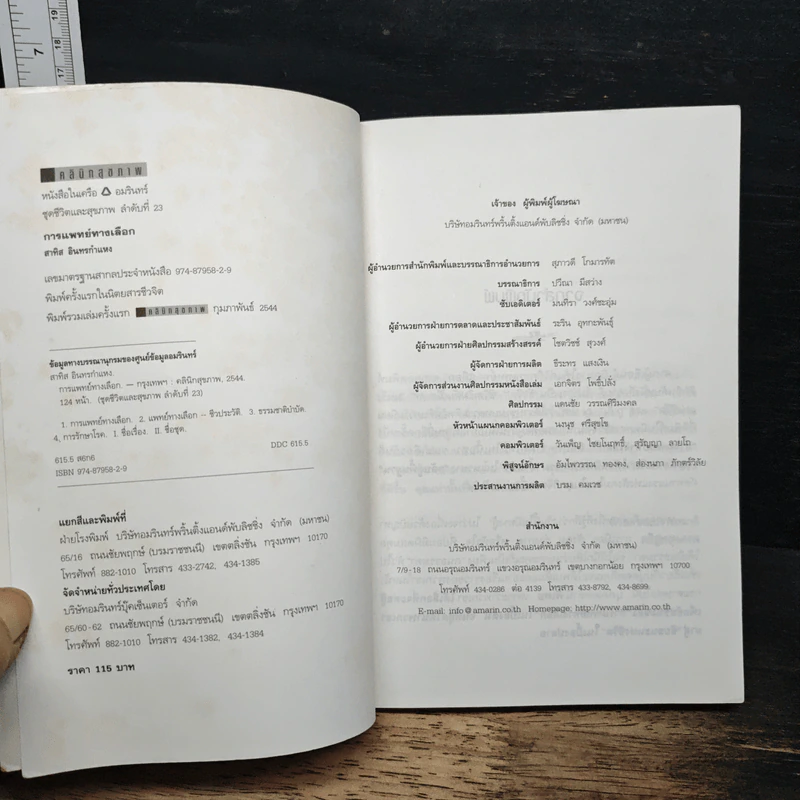 7
19
18
17
คลินิกสุขภาพ
หนังสือในเครือ อมรินทร์
ชุดชีวิตและสุขภาพ ลำดับที่ 23
การแพทย์ทางเลือก
สาทิส อินทรกำแหง
เลขมาตรฐานสากลประจำหนังสือ 974-87958-2-9
พิมพ์ครั้งแรกในนิตยสารชีวจิต
พิมพ์รวมเล่มครั้งแรก คลินิกสุขภาพ กุมภาพันธ์ 2544
ข้อมูลทางบรรณานุกรมของศูนย์ข้อมูลอมรินทร์
สาทิส อินทรกำแหง.
การแพทย์ทางเลือก. -- กรุงเทพฯ : คลินิกสุขภาพ, 2544.
124 หน้า. (ชุดชีวิตและสุขภาพ ลำดับที่ 23)
1. การแพทย์ทางเลือก. 2. แพทย์ทางเลือก -- ชีวประวัติ. 3. ธรรมชาติบำบัด.
4. การรักษาโรค. I. ชื่อเรื่อง. II. ชื่อชุด.
615.5 ส617ก DDC 615.5
ISBN 974-87958-2-9
แยกสีและพิมพ์ที่
ฝ่ายโรงพิมพ์ บริษัทอมรินทร์พริ้นติ้งแอนด์พับลิชชิ่ง จำกัด (มหาชน)
65/16 ถนนชัยพฤกษ์ (บรมราชชนนี) เขตตลิ่งชัน กรุงเทพฯ 10170
โทรศัพท์ 882-1010 โทรสาร 433-2742, 434-1385
จัดจำหน่ายทั่วประเทศโดย
บริษัทอมรินทร์บุ๊คเซ็นเตอร์ จำกัด
65/60-62 ถนนชัยพฤกษ์ (บรมราชชนนี) เขตตลิ่งชัน กรุงเทพฯ 10170
โทรศัพท์ 882-1010 โทรสาร 434-1382, 434-1384
ราคา 115 บาท
เจ้าของ ผู้พิมพ์ผู้โฆษณา
บริษัทอมรินทร์พริ้นติ้งแอนด์พับลิชชิ่ง จำกัด (มหาชน)
ผู้อำนวยการสำนักพิมพ์และบรรณาธิการอำนวยการ สุภาวดี โกมารทัต
บรรณาธิการ ปวีณา มีสว่าง
ซับเอดิเตอร์ มนทิรา วงศ์ชะอุ่ม
ผู้อำนวยการฝ่ายการตลาดและประชาสัมพันธ์ ระริน อุทกะพันธุ์
ผู้อำนวยการฝ่ายศิลปกรรมสร้างสรรค์ โชตวิชช์ สุวงศ์
ผู้จัดการฝ่ายการผลิต ธีระพร แสงเงิน
ผู้จัดการส่วนงานศิลปกรรมหนังสือเล่ม เอกจิตร โพธิ์ปลั่ง
ศิลปกรรม แดนชัย วรรณศิริมงคล
หัวหน้าแผนกคอมพิวเตอร์ นงนุช ศรีสุขโข
คอมพิวเตอร์ วันเพ็ญ ไชยโนฤทธิ์, สุรัญญา ลายโถ
พิสูจน์อักษร อัมไพวรรณ ทองคง, ส่องนภา ภักตร์วิลัย
ประสานงานการผลิต บรม คมเวช
สำนักงาน
บริษัทอมรินทร์พริ้นติ้งแอนด์พับลิชชิ่ง จำกัด (มหาชน)
7/9-18 ถนนอรุณอมรินทร์ แขวงอรุณอมรินทร์ เขตบางกอกน้อย กรุงเทพฯ 10700
โทรศัพท์ 434-0286 ต่อ 4139 โทรสาร 433-8792, 434-8699
E-mail: info@amarin.co.th Homepage: http://www.amarin.co.th